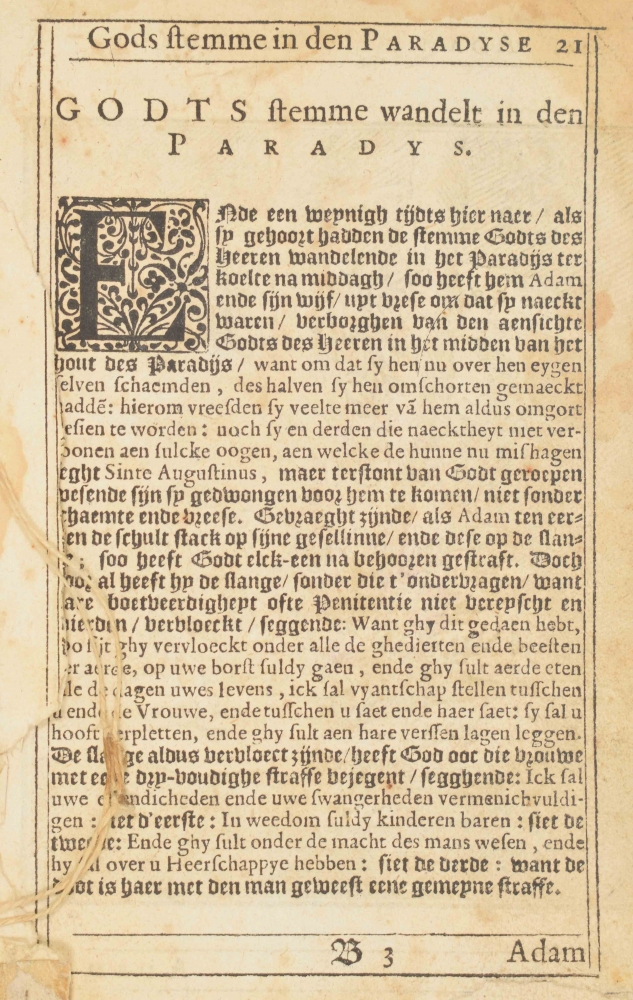 Gods ſtemme in den PARADYSE 21
GODTS ſtemme wandelt in den
PARADYS.
ENde een weynigh tijdts hier naer / als
ſy gehoort hadden de ſtemme Godts des
Heeren wandelende in het Paradijs ter
koelte na middagh / ſoo heeft hem Adam
ende ſijn wijf / uyt vreſe om dat ſy naeckt
waren / verborghen van den aenſichte
Godts des Heeren in het midden van het
hout des Paradijs / want om dat ſy hen nu over hen eygen
ſelven ſchaemden , des halven ſy hen omſchorten gemaeckt
haddē: hierom vreeſden ſy veelte meer vā hem aldus omgort
eſien te worden : noch ſy en derden die naecktheyt niet ver-
oonen aen ſulcke oogen, aen welcke de hunne nu miſhagen
eght Sinte Auguſtinus , maer terſtont van Godt geroepen
weſende ſijn ſy gedwongen voor hem te komen / niet ſonder
ſchaemte ende vreeſe. Gebraeght zijnde / als Adam ten eer-
en de ſchult ſtack op ſijne geſellinne / ende deſe op de ſlan-
; ſoo heeft Godt elck-een na behooren geſtraft. Doch
voor al heeft hy de ſlange / ſonder die t'ondervragen / want
are boetveerdigheyt ofte Penitentie niet vereyſcht en
hierdin / vervloeckt / ſeggende: Want ghy dit gedaen hebt,
ſo ſijt ghy vervloeckt onder alle de ghedierten ende beeſten
er aerde, op uwe borſt ſuldy gaen , ende ghy ſult aerde eten
lle de dagen uwes levens , ick ſal vyantſchap ſtellen tuſſchen
u ende de Vrouwe, ende tuſſchen u ſaet ende haer ſaet: ſy ſal u
hooft verpletten, ende ghy ſult aen hare verſſen lagen leggen.
De ſlange aldus vervloect zijnde / heeft God ooc die vrouwe
met eene dry-voudighe ſtraffe bejegent / ſegghende: Ick ſal
uwe ellendicheden ende uwe ſwangerheden vermenichvuldi-
gen : ſiet d'eerſte : In weedom ſuldy kinderen baren : ſiet de
tweede: Ende ghy ſult onder de macht des mans weſen , ende
hy ſal over u Heerſchappye hebben : ſiet de derde : want de
doot is haer met den man geweeſt eene gemeyne ſtraffe.
B 3 Adam